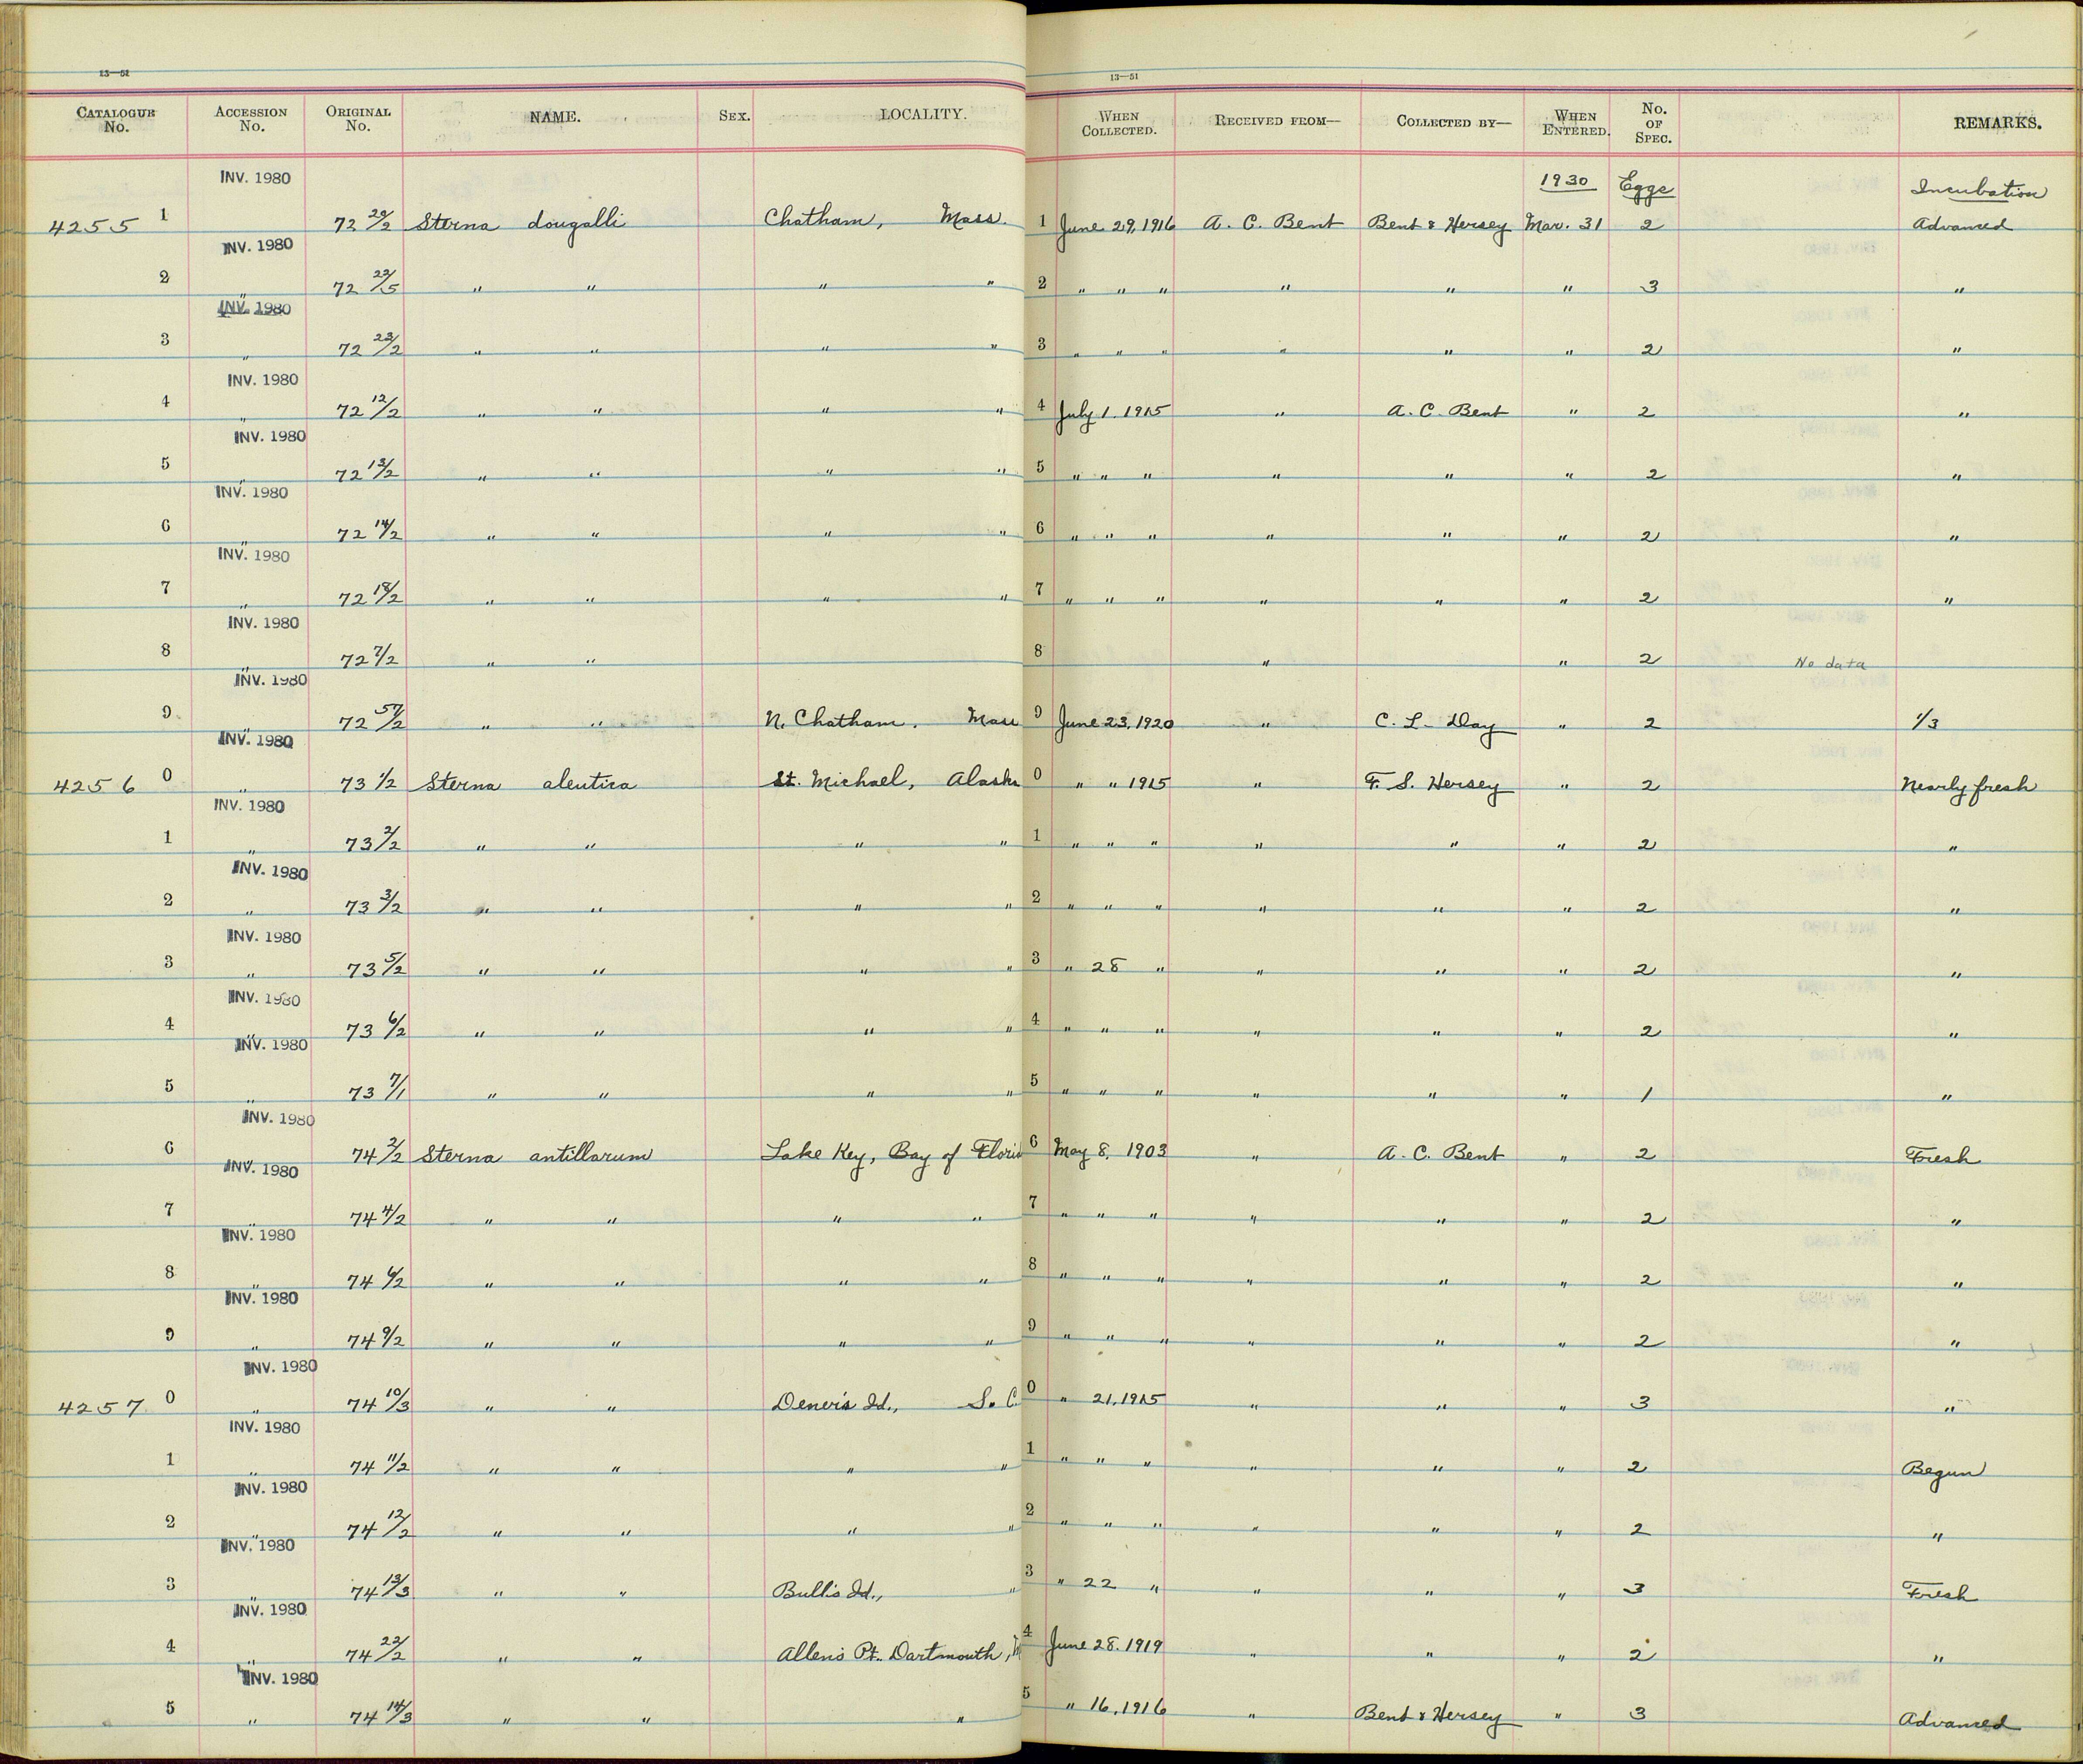 13—51
13—51
CATALOGUE No. ACCESSION No. ORIGINAL No. NAME. SEX. LOCALITY. WHEN COLLECTED. RECEIVED FROM— COLLECTED BY— WHEN ENTERED. No. OF SPEC. REMARKS.
INV. 1980 1930 Eggs Incubation
4255 1 72 20/2 Sterna dougalli Chatham, Mass. 1 June 29, 1916 A. C. Bent Bent & Hersey Mar. 31 2 Advanced
INV. 1980
2 " 72 22/5 " " " " 2 " " " " " " 3 "
INV. 1980
3 " 72 23/2 " " " " 3 " " " " " " 2 "
INV. 1980
4 " 72 12/2 " " " " 4 July 1, 1915 " A. C. Bent " 2 "
INV. 1980
5 " 72 13/2 " " " " 5 " " " " " " 2 "
INV. 1980
6 " 72 14/2 " " " " 6 " " " " " " 2 "
INV. 1980
7 " 72 18/2 " " " " 7 " " " " " " 2 "
INV. 1980
8 " 72 7/2 " " 8 " " 2 No data
INV. 1980
9 " 72 57/2 " " N. Chatham, Mass 9 June 23, 1920 " C. L. Day " 2 1/3
INV. 1980
4256 0 " 73 1/2 Sterna aleutica St. Michael, Alaska 0 " " 1915 " F. S. Hersey " 2 Nearly fresh
INV. 1980
1 " 73 2/2 " " " " 1 " " " " " " 2 "
INV. 1980
2 " 73 3/2 " " " " 2 " " " " " " 2 "
INV. 1980
3 " 73 5/2 " " " " 3 " 28 " " " " 2 "
INV. 1980
4 " 73 6/2 " " " " 4 " " " " " " 2 "
INV. 1980
5 " 73 7/1 " " " " 5 " " " " " " 1 "
INV. 1980
6 74 2/2 Sterna antillarum Lake Key, Bay of Florid 6 May 8, 1903 " A. C. Bent " 2 Fresh
INV. 1980
7 " 74 4/2 " " " " 7 " " " " " " 2 "
INV. 1980
8 " 74 6/2 " " " " 8 " " " " " " 2 "
INV. 1980
9 " 74 9/2 " " " " 9 " " " " " " 2 "
INV. 1980
4257 0 " 74 10/3 " " Dener's Id., S. C. 0 " 21, 1915 " " " 3 "
INV. 1980
1 " 74 11/2 " " " " 1 " " " " " " 2 Begun
INV. 1980
2 " 74 12/2 " " " " 2 " " " " " " 2 "
INV. 1980
3 " 74 13/3 " " Bull's Id., " 3 " 22 " " " " 3 Fresh
INV. 1980
4 " 74 22/2 " " Allen's Pt. Dartmouth, M 4 June 28, 1919 " " " 2 "
INV. 1980
5 " 74 14/3 " " " 5 " 16, 1916 " Bent & Hersey " 3 Advanced